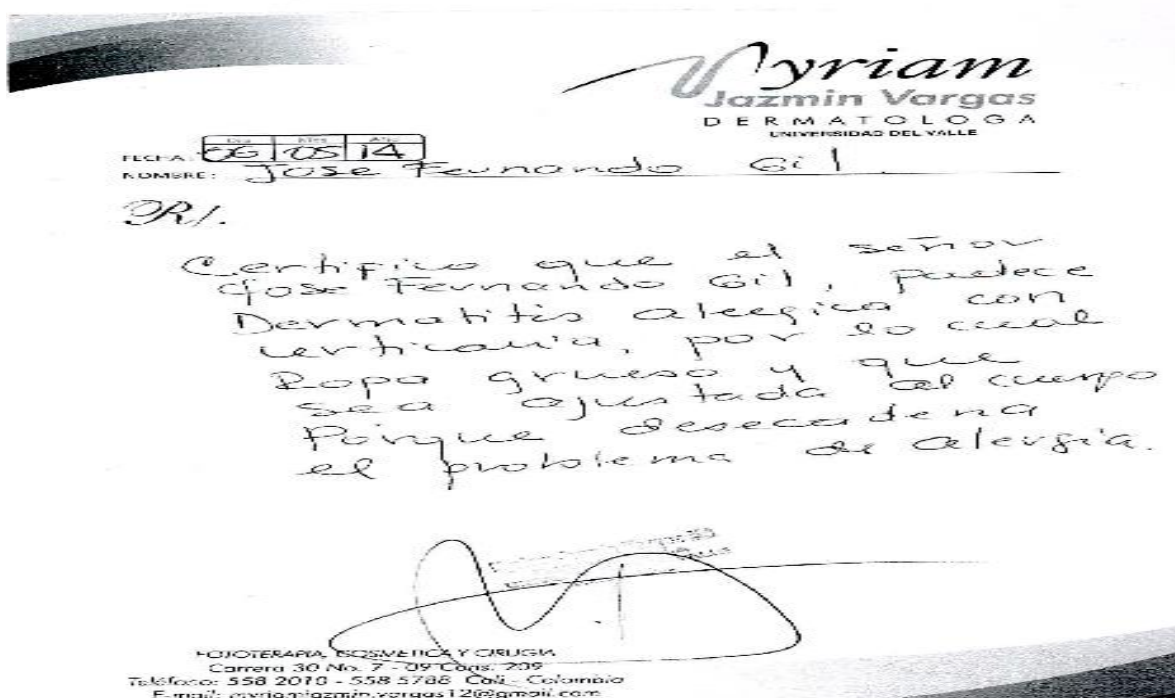 Myriam
Jazmin Vargas
DERMATOLOGA
UNIVERSIDAD DEL VALLE
Dia Mes Año
FECHA: 06 05 14
NOMBRE: Jose Fernando Gil
R/.
Certifico que el señor
Jose Fernando Gil, padece
Dermatitis alergica con
urticaria, por lo cual
Ropa grueso y que
sea ajustada al cuerpo
Porque desecadena
el problema de alergia.
FOTOTERAPIA, COSMETICA Y CIRUGIA
Carrera 30 No. 7 - 09 Cons. 209
Teléfono: 558 2010 - 558 5788 Cali - Colombia
E-mail: myriamjazmin.vargas12@gmail.com